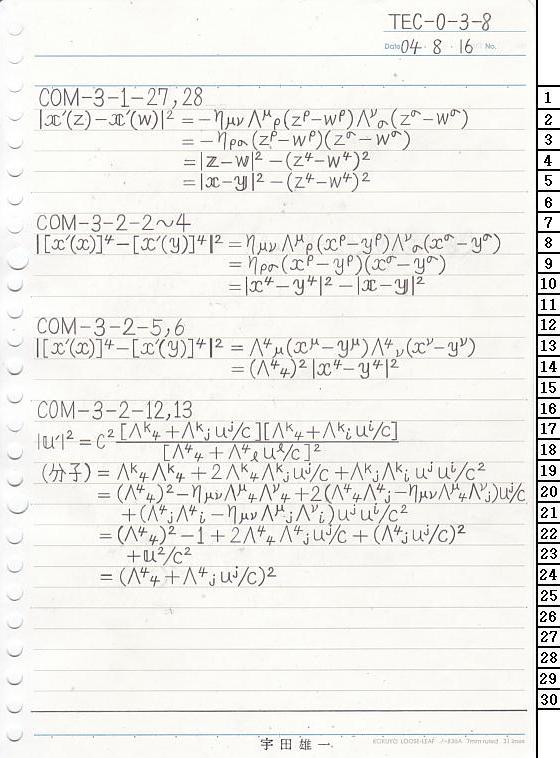 TEC-0-3-8
Date 04・8・16 No.
COM-3-1-27,28
|𝕩′(z)-𝕩′(w)|² = -ημνΛ^μ_ρ(z^ρ-w^ρ)Λ^ν_σ(z^σ-w^σ)
= -ηρσ(z^ρ-w^ρ)(z^σ-w^σ)
= |𝕫-𝕨|²-(z⁴-w⁴)²
= |𝕩-𝕪|²-(z⁴-w⁴)²
COM-3-2-2~4
|[x′(x)]⁴-[x′(y)]⁴|² = ημνΛ^μ_ρ(x^ρ-y^ρ)Λ^ν_σ(x^σ-y^σ)
= ηρσ(x^ρ-y^ρ)(x^σ-y^σ)
= |x⁴-y⁴|²-|𝕩-𝕪|²
COM-3-2-5,6
|[x′(x)]⁴-[x′(y)]⁴|² = Λ⁴_μ(x^μ-y^μ)Λ⁴_ν(x^ν-y^ν)
= (Λ⁴₄)²|x⁴-y⁴|²
COM-3-2-12,13
|𝕦′|² = c² [Λ^k₄+Λ^k_j u^j/c][Λ^k₄+Λ^k_i u^i/c]
[Λ⁴₄+Λ⁴_ℓ u^ℓ/c]²
(分子) = Λ^k₄Λ^k₄+2Λ^k₄Λ^k_j u^j/c+Λ^k_jΛ^k_i u^j u^i/c²
= (Λ⁴₄)²-ημνΛ^μ₄Λ^ν₄+2(Λ⁴₄Λ⁴_j-ημνΛ^μ₄Λ^ν_j)u^j/c
+(Λ⁴_jΛ⁴_i-ημνΛ^μ_jΛ^ν_i)u^j u^i/c²
= (Λ⁴₄)²-1+2Λ⁴₄Λ⁴_j u^j/c+(Λ⁴_j u^j/c)²
+𝕦²/c²
= (Λ⁴₄+Λ⁴_j u^j/c)²
宇田雄一
KOKUYO LOOSE-LEAF ノ-836A 7mm ruled 31 lines
1
2
3
4
5
6
7
8
9
10
11
12
13
14
15
16
17
18
19
20
21
22
23
24
25
26
27
28
29
30